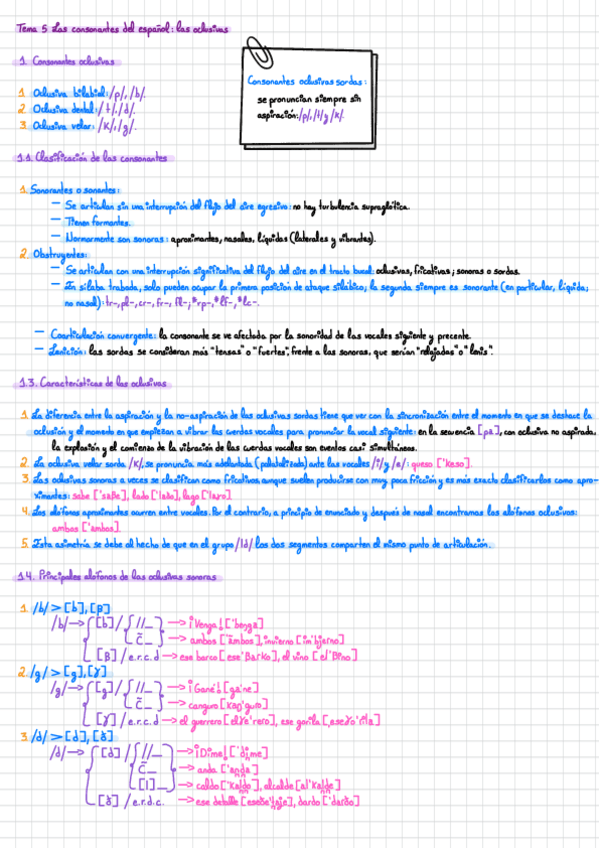 Tema 5 Las consonantes del español: las oclusivas
1. Consonantes oclusivas
1. Oclusiva bilabial: /p/, /b/.
2. Oclusiva dental: /t/, /d/.
3. Oclusiva velar: /k/, /g/.
Consonantes oclusivas sordas:
se pronuncian siempre sin
aspiración: /p/, /t/ y /k/.
1.1. Clasificación de las consonantes
1. Sonorantes o sonantes:
— Se articulan sin una interrupción del flujo del aire egresivo: no hay turbulencia supraglótica.
— Tienen formantes.
— Normormente son sonoras: aproximantes, nasales, líquidas (laterales y vibrantes).
2. Obstruyentes:
— Se articulan con una interrupción significativa del flujo del aire en el tracto bucal: oclusivas, fricativas; sonoras o sordas.
— En sílaba trabada, solo pueden ocupar la primera posición de ataque silábico, la segunda siempre es sonorante (en particular, líquida;
no nasal): tr-, pl-, cr-, fr-, fl-, *rp-, *lf-, *lc-.
— Coarticulación convergente: la consonante se ve afectada por la sonoridad de las vocales siguiente y precente.
— Lenición: las sordas se consideran más "tensas" o "fuertes", frente a las sonoras, que serían "relajadas" o "lenis".
1.3. Características de las oclusivas
1. La diferencia entre la aspiración y la no-aspiración de las oclusivas sordas tiene que ver con la sincronización entre el momento en que se deshace la
oclusión y el momento en que empiezan a vibrar las cuerdas vocales para pronunciar la vocal siguiente: en la secuencia [pa], con oclusiva no aspirada,
la explosión y el comienzo de la vibración de las cuerdas vocales son eventos casi simultáneos.
2. La oclusiva velar sorda /k/, se pronuncia más adelantada (palatalizada) ante las vocales /i/ y /e/: queso ['keso].
3. Las oclusivas sonoras a veces se clasifican como fricativas, aunque suelen producirse con muy poca fricción y es más exacto clasificarlas como apro-
ximantes: sabe ['saβe], lado ['laðo], lago ['laɣo].
4. Los alófonos aproximantes ocurren entre vocales. Por el contrario, a principio de enunciado y después de nasal encontramos los alófonos oclusivos:
ambos ['ambos].
5. Esta asimetría se debe al hecho de que en el grupo /ld/ los dos segmentos comparten el mismo punto de articulación.
1.4. Principales alófonos de las oclusivas sonoras
1. /b/ > [b], [β]
/b/ → [b] / //_ → ¡Venga! ['benga]
C̃_ → ambos ['ãmbos], invierno [im'bjerno]
[β] / e.r.c.d → ese barco [ese'βarko], el vino [el'βino]
2. /g/ > [g], [ɣ]
/g/ → [g] / //_ → ¡Gané! [ga'ne]
C̃_ → canguro [kaŋ'guro]
[ɣ] / e.r.c.d → el guerrero [elɣe'rero], ese gorila [eseɣo'rila]
3. /d/ > [d], [ð]
/d/ → [d] / //_ → ¡Dime! ['dime]
C̃_ → anda ['anda]
[l]_ → caldo ['kaldo], alcalde [al'kalde]
[ð] / e.r.d.c. → ese detalle [eseðe'taʝe], dardo ['darðo]